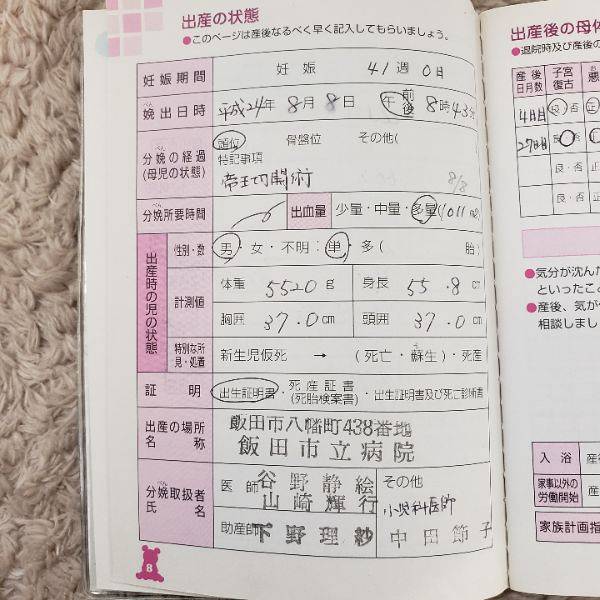 出産の状態
●このページは産後なるべく早く記入してもらいましょう。
妊娠期間 妊娠 41週 0日
娩出日時 平成24年 8月 8日 午 前 後 8時43分
分娩の経過 (母児の状態) 頭位 骨盤位 その他(
特記事項
帝王切開術 8/8
分娩所要時間 出血量 少量・中量・多量(1011ml)
出産時の児の状態
性別・数 男・女・不明 : 単・多( 胎)
計測値 体重 5520g 身長 55.8cm
胸囲 37.0cm 頭囲 37.0cm
特別な所見・処置 新生児仮死 → (死亡・蘇生)・死産
証明 出生証明書・死産証書(死胎検案書)・出生証明書及び死亡診断書
出産の場所 名称 飯田市八幡町438番地
飯田市立病院
分娩取扱者 氏名 医師 谷野静絵 その他
山崎輝行 小児科医師
助産師 下野理紗 中田節子
8
出産後の母体
●退院時及び産後の
産後日月数 子宮復古 悪
4日目 良・否 正
27日目 良・否 正
良・否 正
良・否 正
●気分が沈んだ
といったこと
●産後、気が
相談しまし
入浴 産
家事以外の労働開始 産
家族計画指